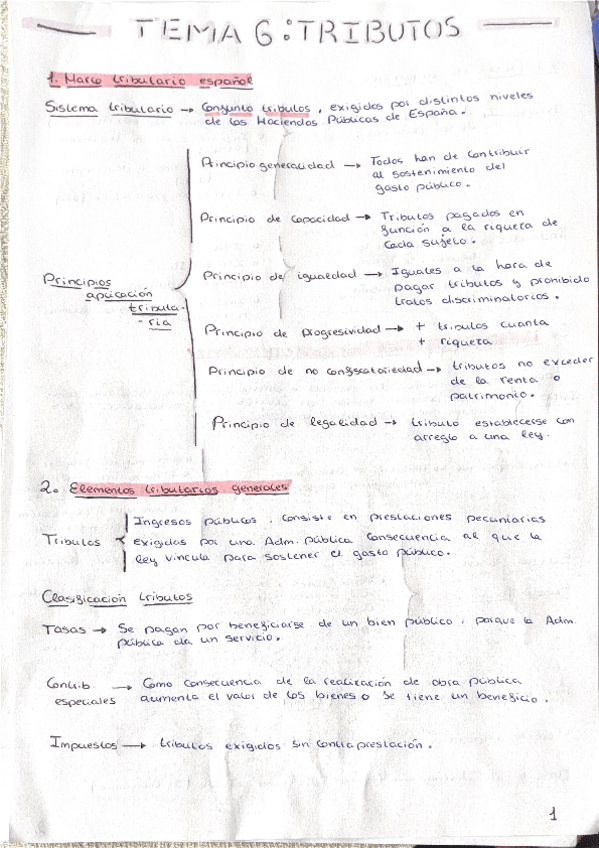 TEMA 6: TRIBUTOS
1. Marco tributario español
Sistema tributario → Conjunto tributos, exigidos por distintos niveles
de las Haciendas Públicas de España.
Principios
aplicación
tributa-
-ria
Principio generalidad → Todos han de contribuir
al sostenimiento del
gasto público.
Principio de capacidad → Tributos pagados en
función a la riqueza de
cada sujeto.
Principio de igualdad → Iguales a la hora de
pagar tributos y prohibido
tratos discriminatorios.
Principio de progresividad → + tributos cuanta
+ riqueza
Principio de no confiscatoriedad → tributos no exceder
de la renta o
patrimonio.
Principio de legalidad → tributo establecerse con
arreglo a una ley.
2. Elementos tributarios generales
Tributos
Ingresos públicos. Consiste en prestaciones pecuniarias
exigidas por una Adm. pública consecuencia al que la
ley vincula para sostener el gasto público.
Clasificación tributos
Tasas → Se pagan por beneficiarse de un bien público, porque la Adm.
pública da un servicio.
Contrib. especiales → Como consecuencia de la realización de obra pública
aumenta el valor de los bienes o se tiene un beneficio.
Impuestos → tributos exigidos sin contraprestación.
1